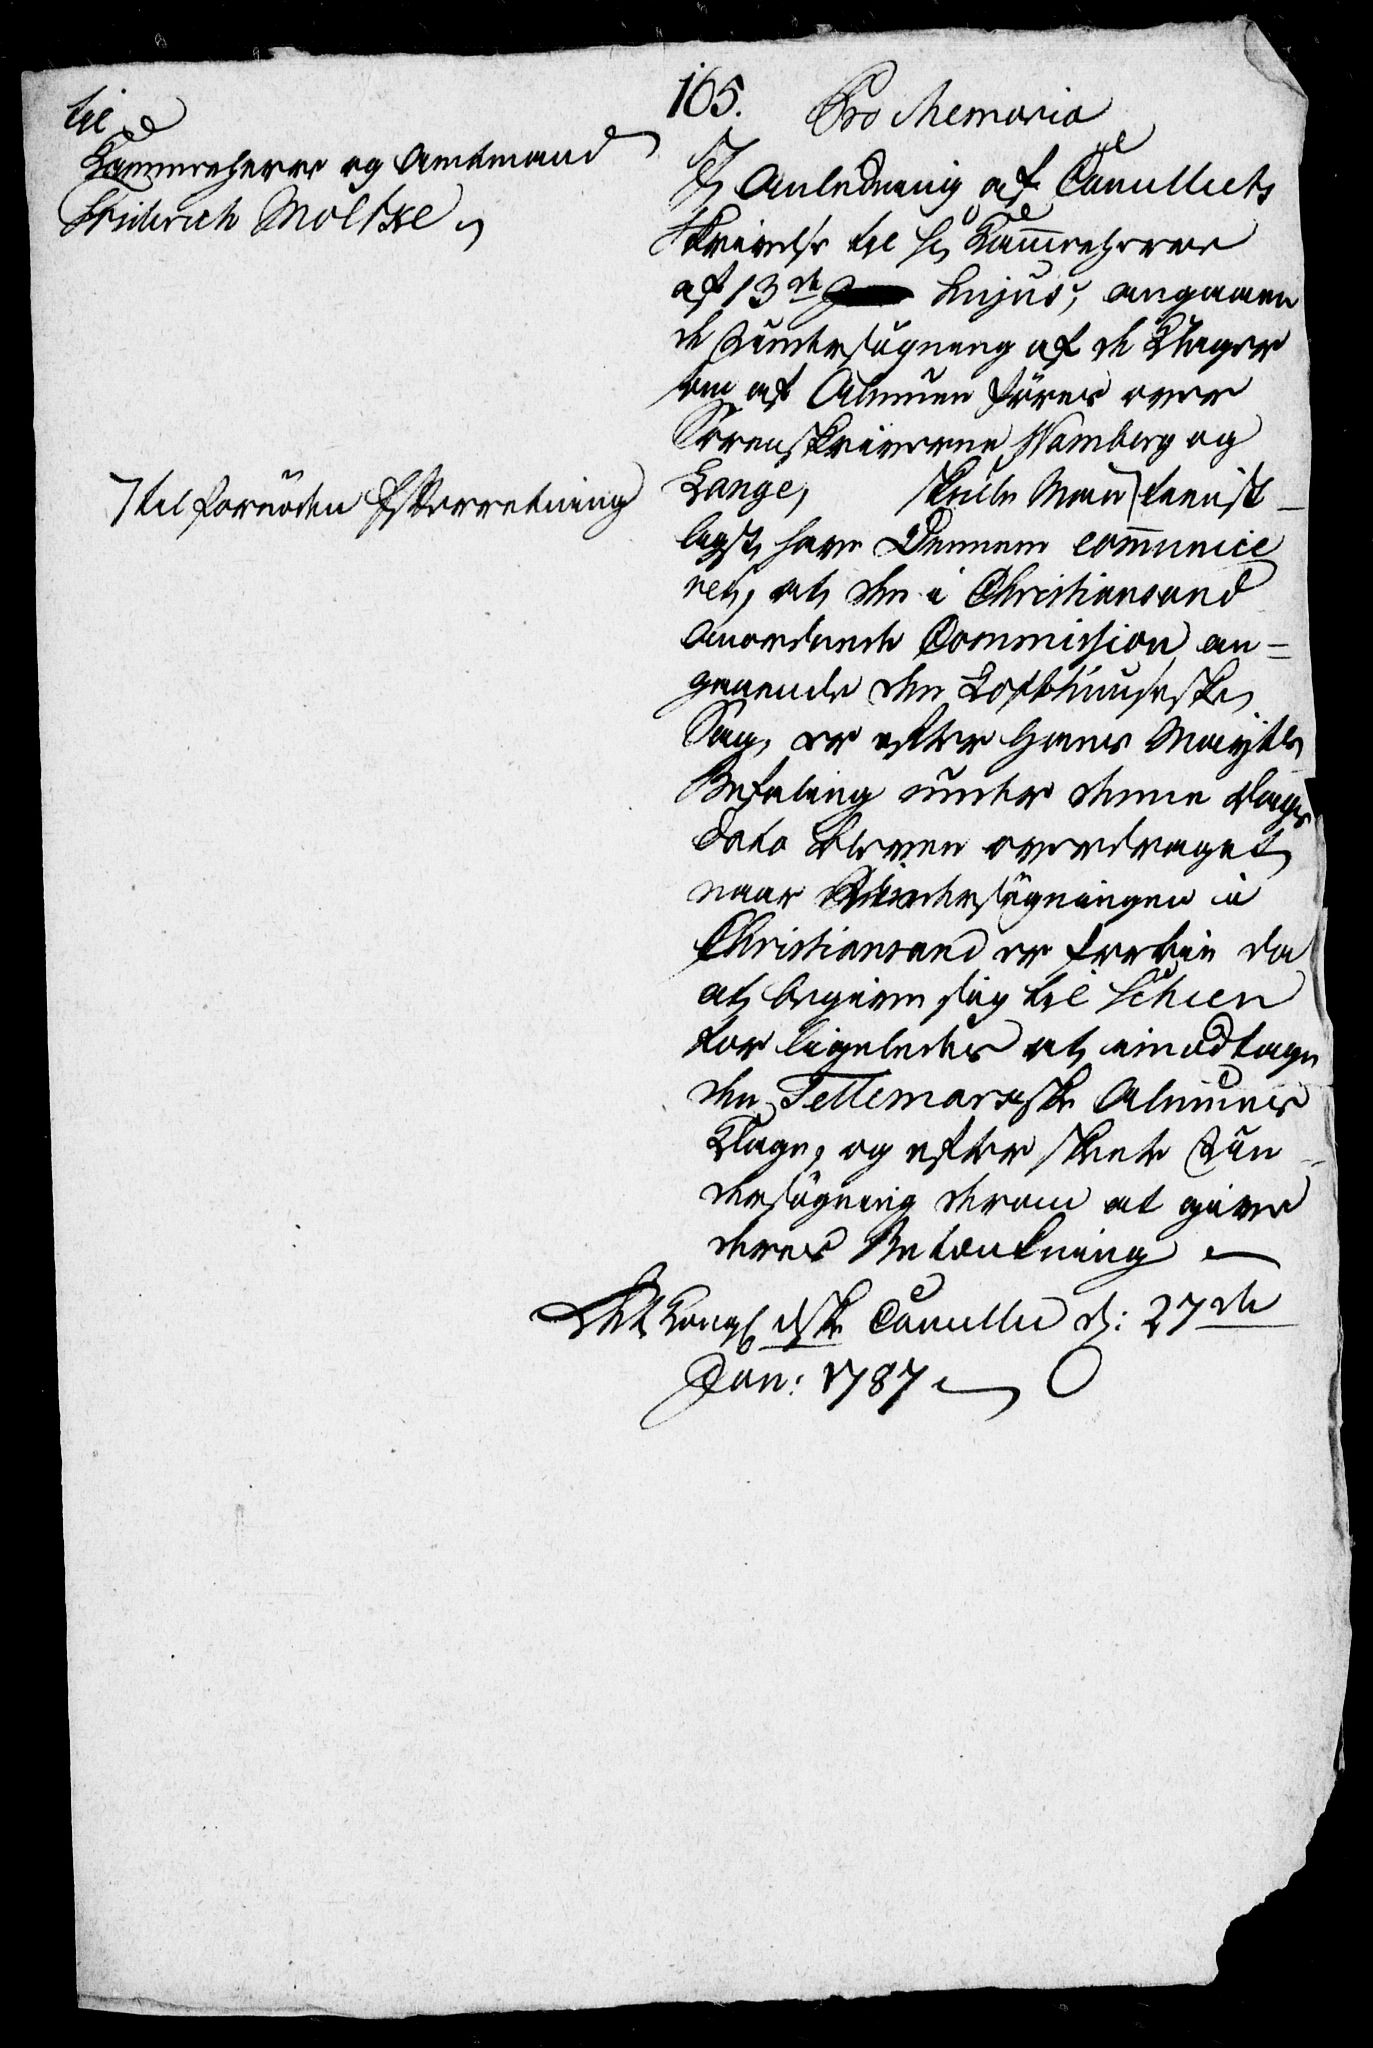 til
Kammerherre og Amtmand
Friderich Moltke
165.
Pro Memoria
I Anledning af Cancelliets
Skrivelse til Hr Kammerherre
af 13de hujus, angaaen
de Undersøgning af de Klager
som af Almuen føres over
Sorenskriverne Wamberg og
Lange, skulle Man tienst-
⁊ til fornøden Efterretning
ligst have Dennem communice
ret, at den i Christiansand
anordnede Commission an=
gaaende den Lofthuusiske
Sag, er efter Hans Mayts
Befaling under denne Dags
Dato bleven overdraget
naar Undersøgningen i
Christiansand er forbie da
at begive sig til Schien
for ligeledes at imodtage
den Tellemarkske Almues
Klage, og efter skeete Un-
dersøgning derom at give
deres Betænkning
Det Kongl dske Cancellie d: 27de
Jan: 1787